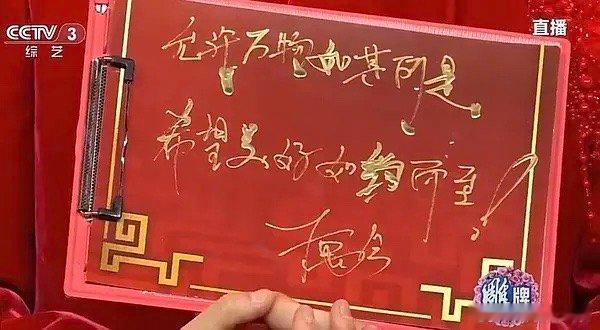 CCTV 3
综艺
直播
允许万物如其所是
希望美好如约而至!
雕牌